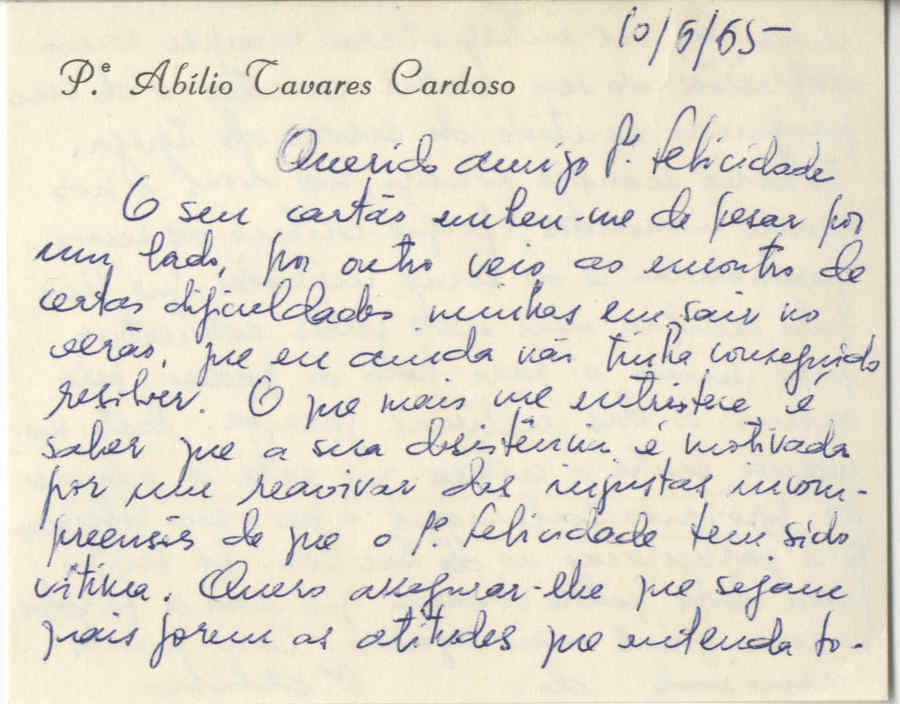 10/6/65
P.e Abílio Tavares Cardoso
Querido amigo P.e Felicidade
O seu cartão encheu-me de pesar por
um lado, por outro veio ao encontro de
certas dificuldades minhas em sair no
verão, que eu ainda não tinha conseguido
resolver. O que mais me entristece é
saber que a sua desistência é motivada
por um reavivar das injustas incom-
preensões de que o P.e Felicidade tem sido
vítima. Quero assegurar-lhe que sejam
quais forem as atitudes que entenda to-